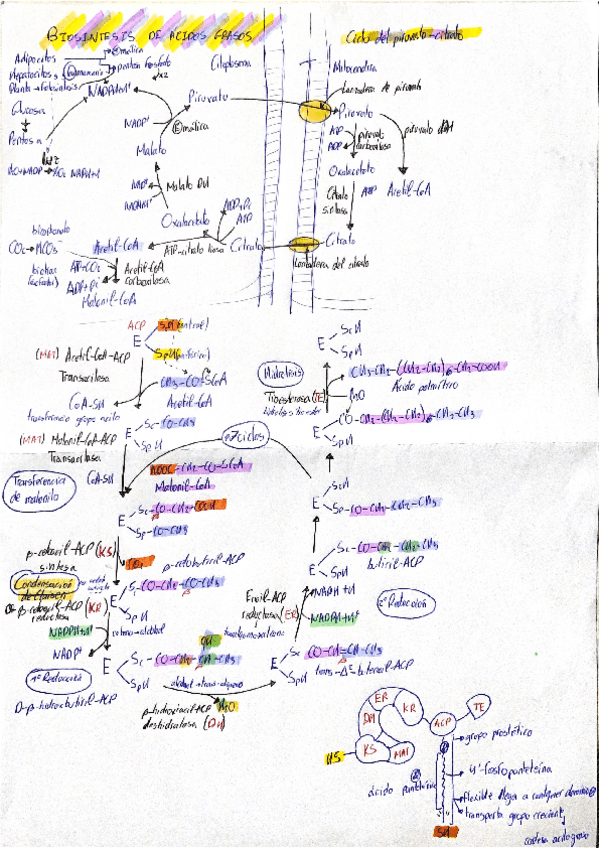 BIOSINTESIS DE ACIDOS GRASOS
Ciclo del piruvato-citrato
Adipocitos
Hepatocitos
Planta → fotosíntesis
Glucosa
Pentosa
pentosa fosfato
NADPH+H⁺
Citoplasma
Mitocondria
Piruvato
NADP⁺
Ⓔ málica
Malato
NAD⁺
NADH+H⁺
Malato DH
Oxalacetato
ADP+Pi
ATP
Acetil-CoA
ATP-citrato liasa
Citrato
bicarbonato
CO₂ → HCO₃⁻
biotina
ADP+Pi
Acetil-CoA
carboxilasa
Malonil-CoA
Lanzadera de piruvato
Piruvato
ATP
ADP
piruvato
carboxilasa
piruvato DH
Oxalacetato
Citrato
sintasa
Acetil-CoA
Citrato
Lanzadera del citrato
ACP
E
SpH
(MAT) Acetil-CoA-ACP
Transacilasa
CH₃-CO-SCoA
Acetil-CoA
CoA-SH
transferencia grupo acilo
E
Sc-CO-CH₃
SpH
(MAT) Malonil-CoA-ACP
Transacilasa
CoA-SH
Transferencia
de malonilo
HOOC-CH₂-CO-SCoA
Malonil-CoA
7 ciclos
E
Sc-CO-CH₂-COOH
Sp-CO-CH₃
β-cetoacil-ACP (KS)
sintasa
CO₂
β-cetobutiril-ACP
Condensación
de Claisen
E
Sc-CO-CH₂-CO-CH₃
SpH
β-cetoacil-ACP (KR)
reductasa
NADPH+H⁺
NADP⁺
1ª Reducción
D-β-hidroxibutiril-ACP
E
Sc-CO-CH₂-CH-CH₃
OH
SpH
β-hidroxiacil-ACP
deshidratasa (DH)
H₂O
E
Sc-CO-CH=CH-CH₃
SpH
trans-Δ²-butenoil-ACP
Enoil-ACP
reductasa (ER)
NADPH+H⁺
2ª Reducción
E
Sc-CO-CH₂-CH₂-CH₃
SpH
butiril-ACP
E
ScH
Sp-CO-CH₂-CH₂-CH₃
Hidrólisis
Tioesterasa (TE)
H₂O
Ácido palmítico
E
ScH
SpH
ER
KR
DH
KS
MAT
ACP
TE
HS
grupo prostético
4'-fosfopanteteína
ácido pantoténico
flexible llega a cualquier dominio
transporta grupo creciente
cadena ácido graso
SH